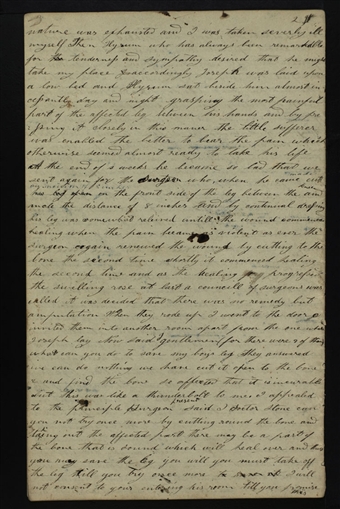 nature was exhausted and I was taken severely ill
myself Then Hyrum who has always been remarkable
for his tenderness and sympathy desired that he might
take my place accordingly Joseph was laid upon
a low bed and Hyrum sat beside him almost in
cesantly day and night grasping the most painful
part of the affected leg between his hands and by pre
ssing it closely in this maner the little sufferer
was enabled the better to bear the pain which
otherwise seemed almost ready to take his life
At the end of 3 weeks he became so bad that we
sent again for the surgeon who when he came cut
the leg open on the front side of the leg between the knee and
ancle the distance of 8 inches
his leg was somewhat relieved untill the wound commenced
healing when the pain became as violent as ever the
surgeon again renewed the wound by cutting to the
bone the second time shortly it commenced healing
the second time and as the healing progressed
the swelling rose at last a councell of surgeons was
called it was decided that there was no remedy but
amputation When they rode up I went to the door &
invited them into another room apart from the one where
Joseph lay Now said I gentlemen for there were 7 of them
what can you do to save my boys leg They answered
we can do nothing we have cut it open to the bone
and find the bone so affected that it is incurable
But this was like a thunderbolt to me I appealed
to the principle Surgeon present said I Doctor Stone can
you not try once more by cutting round the bone and
taking out the affected part there may be a part of
the bone that is sound which will heal over and
you may save the leg you will you must take off
the leg till you try once more I will
not consent to your entering his room till you promise